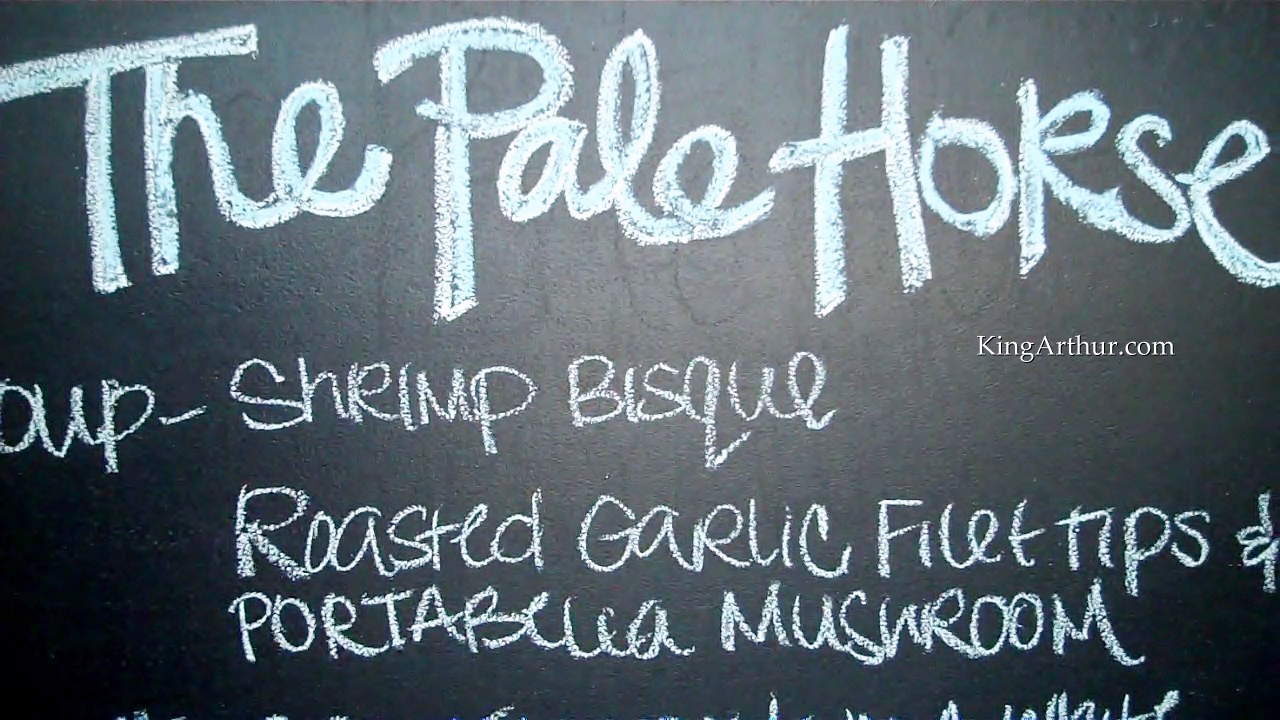 The Pale Horse
KingArthur.com
oup- Shrimp Bisque
Roasted Garlic Filet tips &
PORTABella MUSHROOM